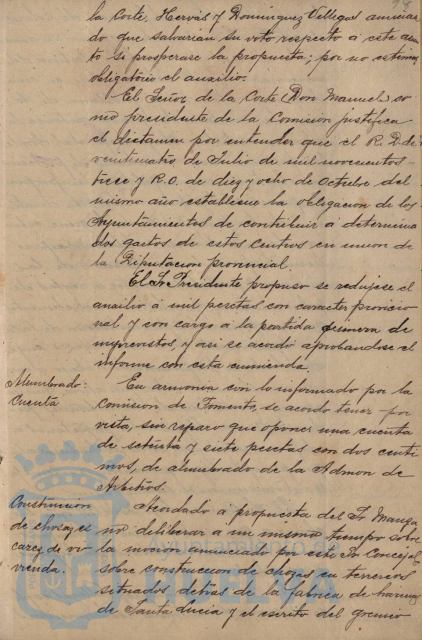 la Corte, Hervás y Dominguez Villegas anuncian
do que salvarian su voto respecto á este asun
to si prosperase la propuesta; por no estimar
obligatorio el auxilio.
El Señor de la Corte (Don Manuel) co
mo presidente de la Comision justifica
el dictamen por entender que el R. D. de
veinticuatro de Julio de mil novecientos
trece y R. O. de diez y ocho de Octubre del
mismo año establecen la obligacion de los
Ayuntamientos de contribuir á determina
dos gastos de estos Centros en union de
la Diputacion provincial.
El Sr. Presidente propuso se redujese el
auxilio á mil pesetas con caracter provicio
nal y con cargo á la partida primera de
imprevistos y asi se acordó aprobandose el
informe con esta enmienda.
Alumbrado:
Cuenta
En armonia con lo informado por la
Comision de Fomento, se acordó tener por
vista, sin reparo que oponer una cuenta
de setenta y siete pesetas con dos centi
mos, de alumbrado de la Admon de
Arbitrios.
Construccion
de chozas es
casez de vi
vienda.
Acordado á propuesta del Sr. Manga
no deliberar á un mismo tiempo sobre
la mocion anunciada por este Sr. Concejal
sobre construccion de chozas en terrenos
situados detras de la fabrica de harinas
de Santa Lucia y el escrito del gremio